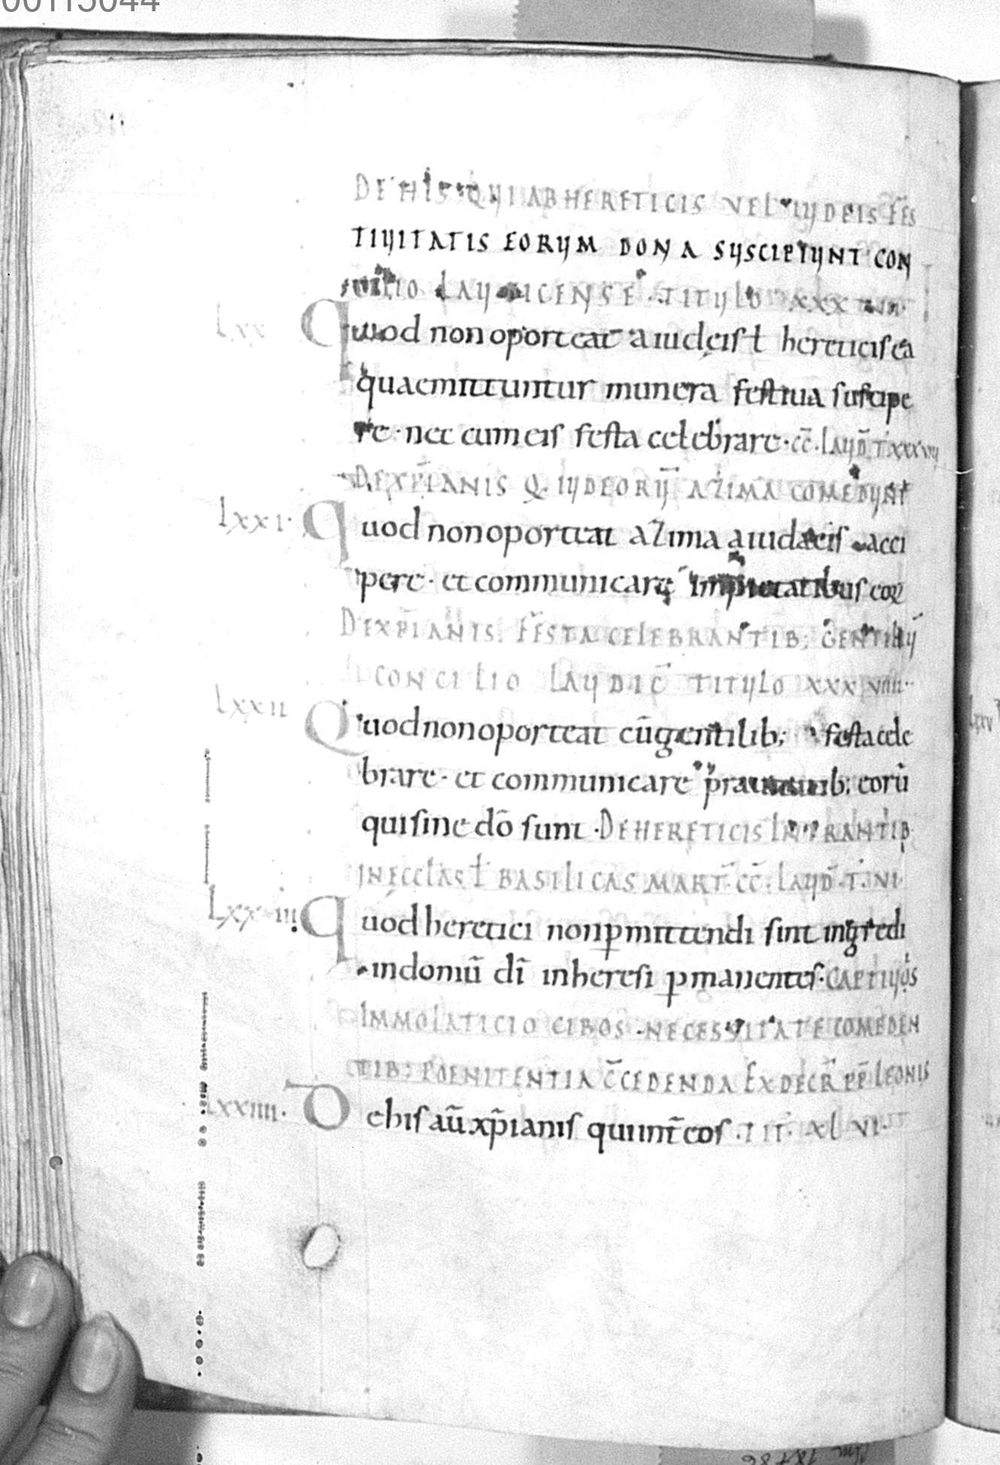 00113044
DE HIS QUI AB HERETICIS VEL IUDEIS FES
TIUITATIS EORUM DONA SUSCIPIUNT CON
CILIO LAUDICENSE · TITULO XXX
Lxx Quod non oporteat a iudeis ł hereticis ea
quae mittuntur munera festiua suscipe
re · nec cum eis festa celebrare · cc̄ · LAUD̄ T xxxvii
DE XP̄IANIS Q IUDEORŪ AZIMA COMEDUNT
Lxxi · Quod non oporteat azima a iudaeis acci
pere · et communicare impietatibus eoꝝ
DE XP̄IANIS FESTA CELEBRANTIB; GENTILIŪ
CONCILIO LAUDIC̄ TITULO XXXVIIII ·
Lxxii Quod non oporteat cū gentilib; festa cele
brare · et communicare prauitatib; eorū
qui sine dō sunt · DE HERETICIS INTRANTIB
IN ECCLAS ł BASILICAS MART̄ · CC̄ · LAUD̄ · T̄ · VI ·
Lxxiii Quod heretici non ꝑmittendi sint ingredi
in domū dī in heresi ꝑmanentes · CAPTIUOS
IMMOLATICIO CIBOS · NECESSITATE COMEDEN
TIB; POENITENTIA C̄CEDENDA EX DECR̄ PP̄ LEONIS
Lxxiiii · De his aū xp̄ianis qui int̄ eos · TIT̄ · XLVI ·
Lxxv